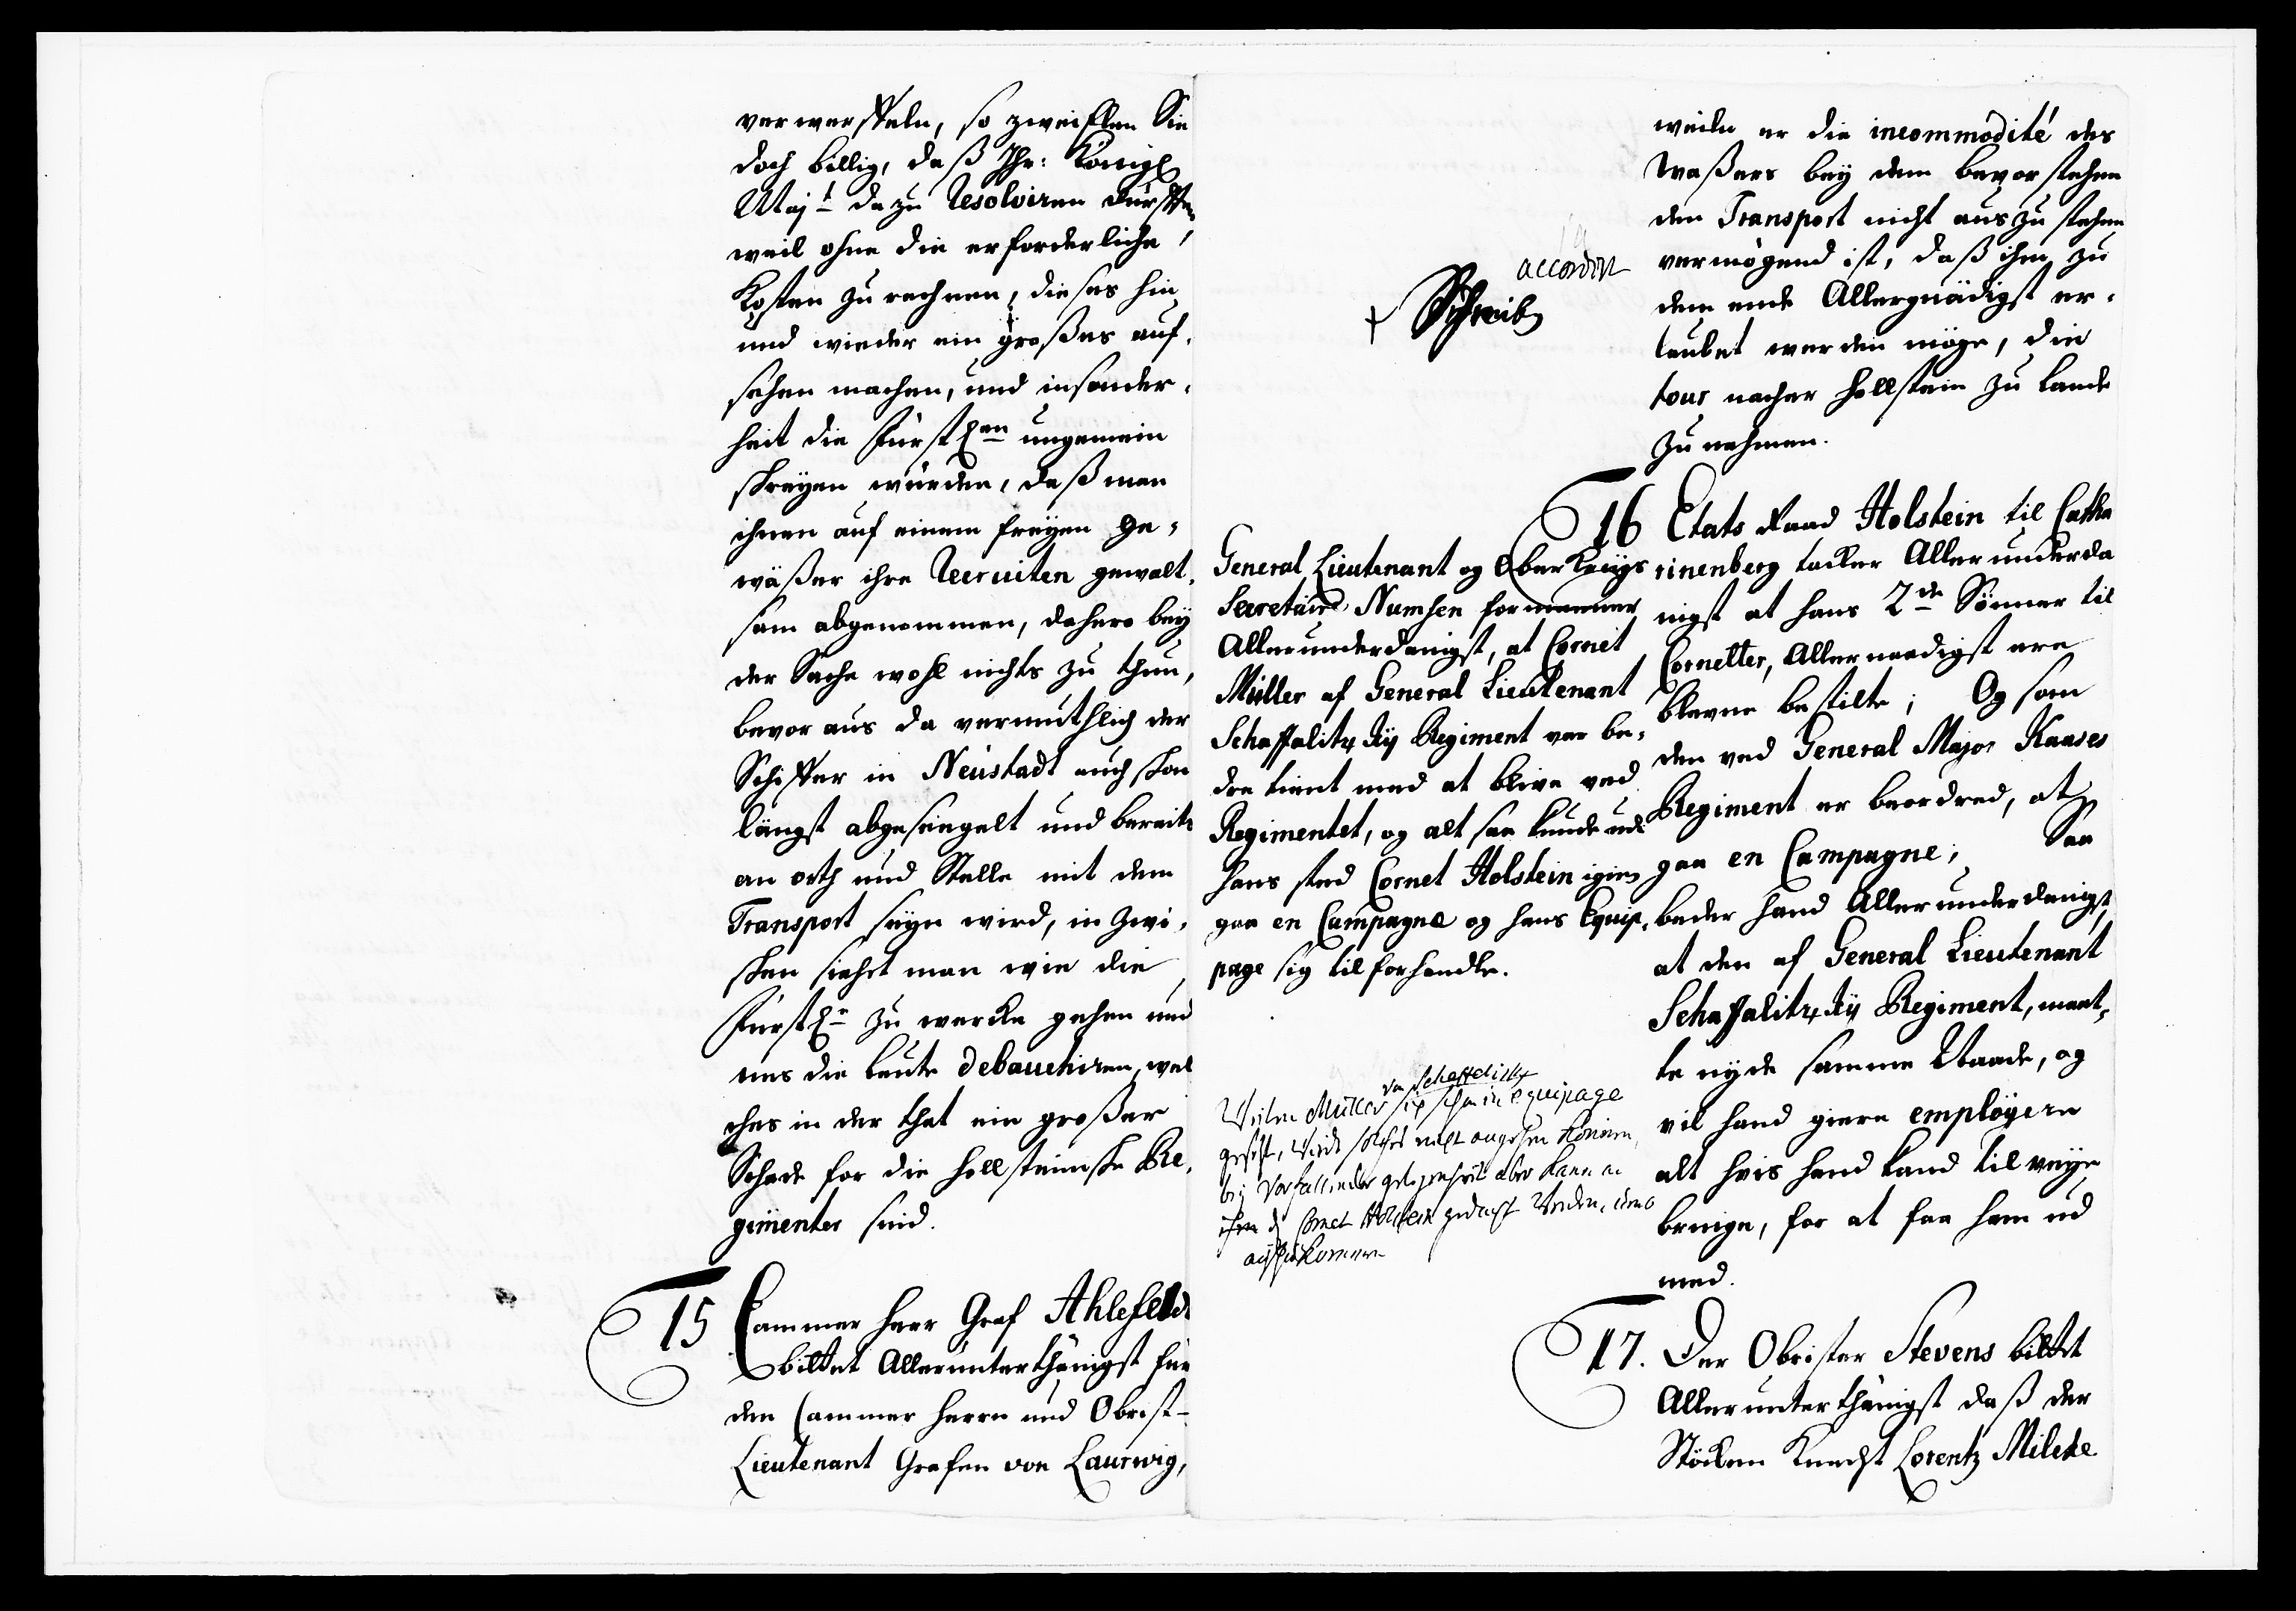 verwerffeln, so zweifflen Sie
doch billig, daß Ihr: Königl
Majt dazu Resolviren durffte,
weil ohne die erforderliche
Kosten zu rechnen, dieses hin
und wieder ein großes auf-
sehen machen, und insonder-
heit die Fürstlen ungemein
schreyen würden, daß man
ihnen auf einem freyen ge-
wäßer ihre Recruiten gewalt-
sam abgenommen, dahero bey
der Sache wohl nichts zu thun,
bevoraus da vermuthlich der
Schiffer in Neustadt auch schon
längst abgesiegelt und bereits
an orth und Stelle mit dem
Transport seyn wird, in zwi-
schen siehet man wie die
Fürstle zu wercke gehen und
uns die leute debauchiren, wel
ches in der that ein großer
Schade for die hollsteinische Re-
gimenter sind.
15 Cammer herr Graf Ahlefeldt
bittet Allerunterthänigst für
den Cammer herrn und Obrist-
Lieutenant Grafen von Laurwig,
weiln er die incommodité des
Waßers bey dem bevorstehen
den Transport nicht auszustehen
vermögend ist, daß ihm zu
dem ende Allergnädigst er-
laubet werden möge, die
tour nacher hollstein zu lande
zu nehmen.
accordirt
Schreib
16 Etats Raad Holstein til Catha
rinenberg tacker Allerunderda
nigst at hans 2de Sönner til
Cornetter, Allernaadigst ere
blevne bestilte; Og som
den ved General Major Kaases
Regiment er beordred, at
gaa en Campagne; Saa
beder hand Allerunderdanigst,
at den af General Lieutenant
Schaffalitzky Regiment, maat-
te nyde samme Naade, og
vil hand gierne employere
alt hvis hand kand til veye
bringe, for at faa ham ud
med.
General Lieutenant og Ober Krigs
Secretaire Numsen formeener
Allerunderdanigst, at Cornet
Müller af General Lieutenant
Schaffalitzky Regiment var be-
dre tient med at blive ved
Regimentet, og alt saa kunde udi
hans sted Cornet Holstein igien
gaa en Campagne og hans Equip-
page sig tilforhandle.
von Schaffelitzky
Weilen Müller sich schon in equipage
gesetzt, wird solches nicht angehen können,
bey vorfallender gelegenheit aber kann an
Cornet Holstein gedacht werden, umb
auszukommen
17. Der Obrister Stevens bittet
Allerunterthänigst daß der
Stöcken Knecht Lorentz Milcke